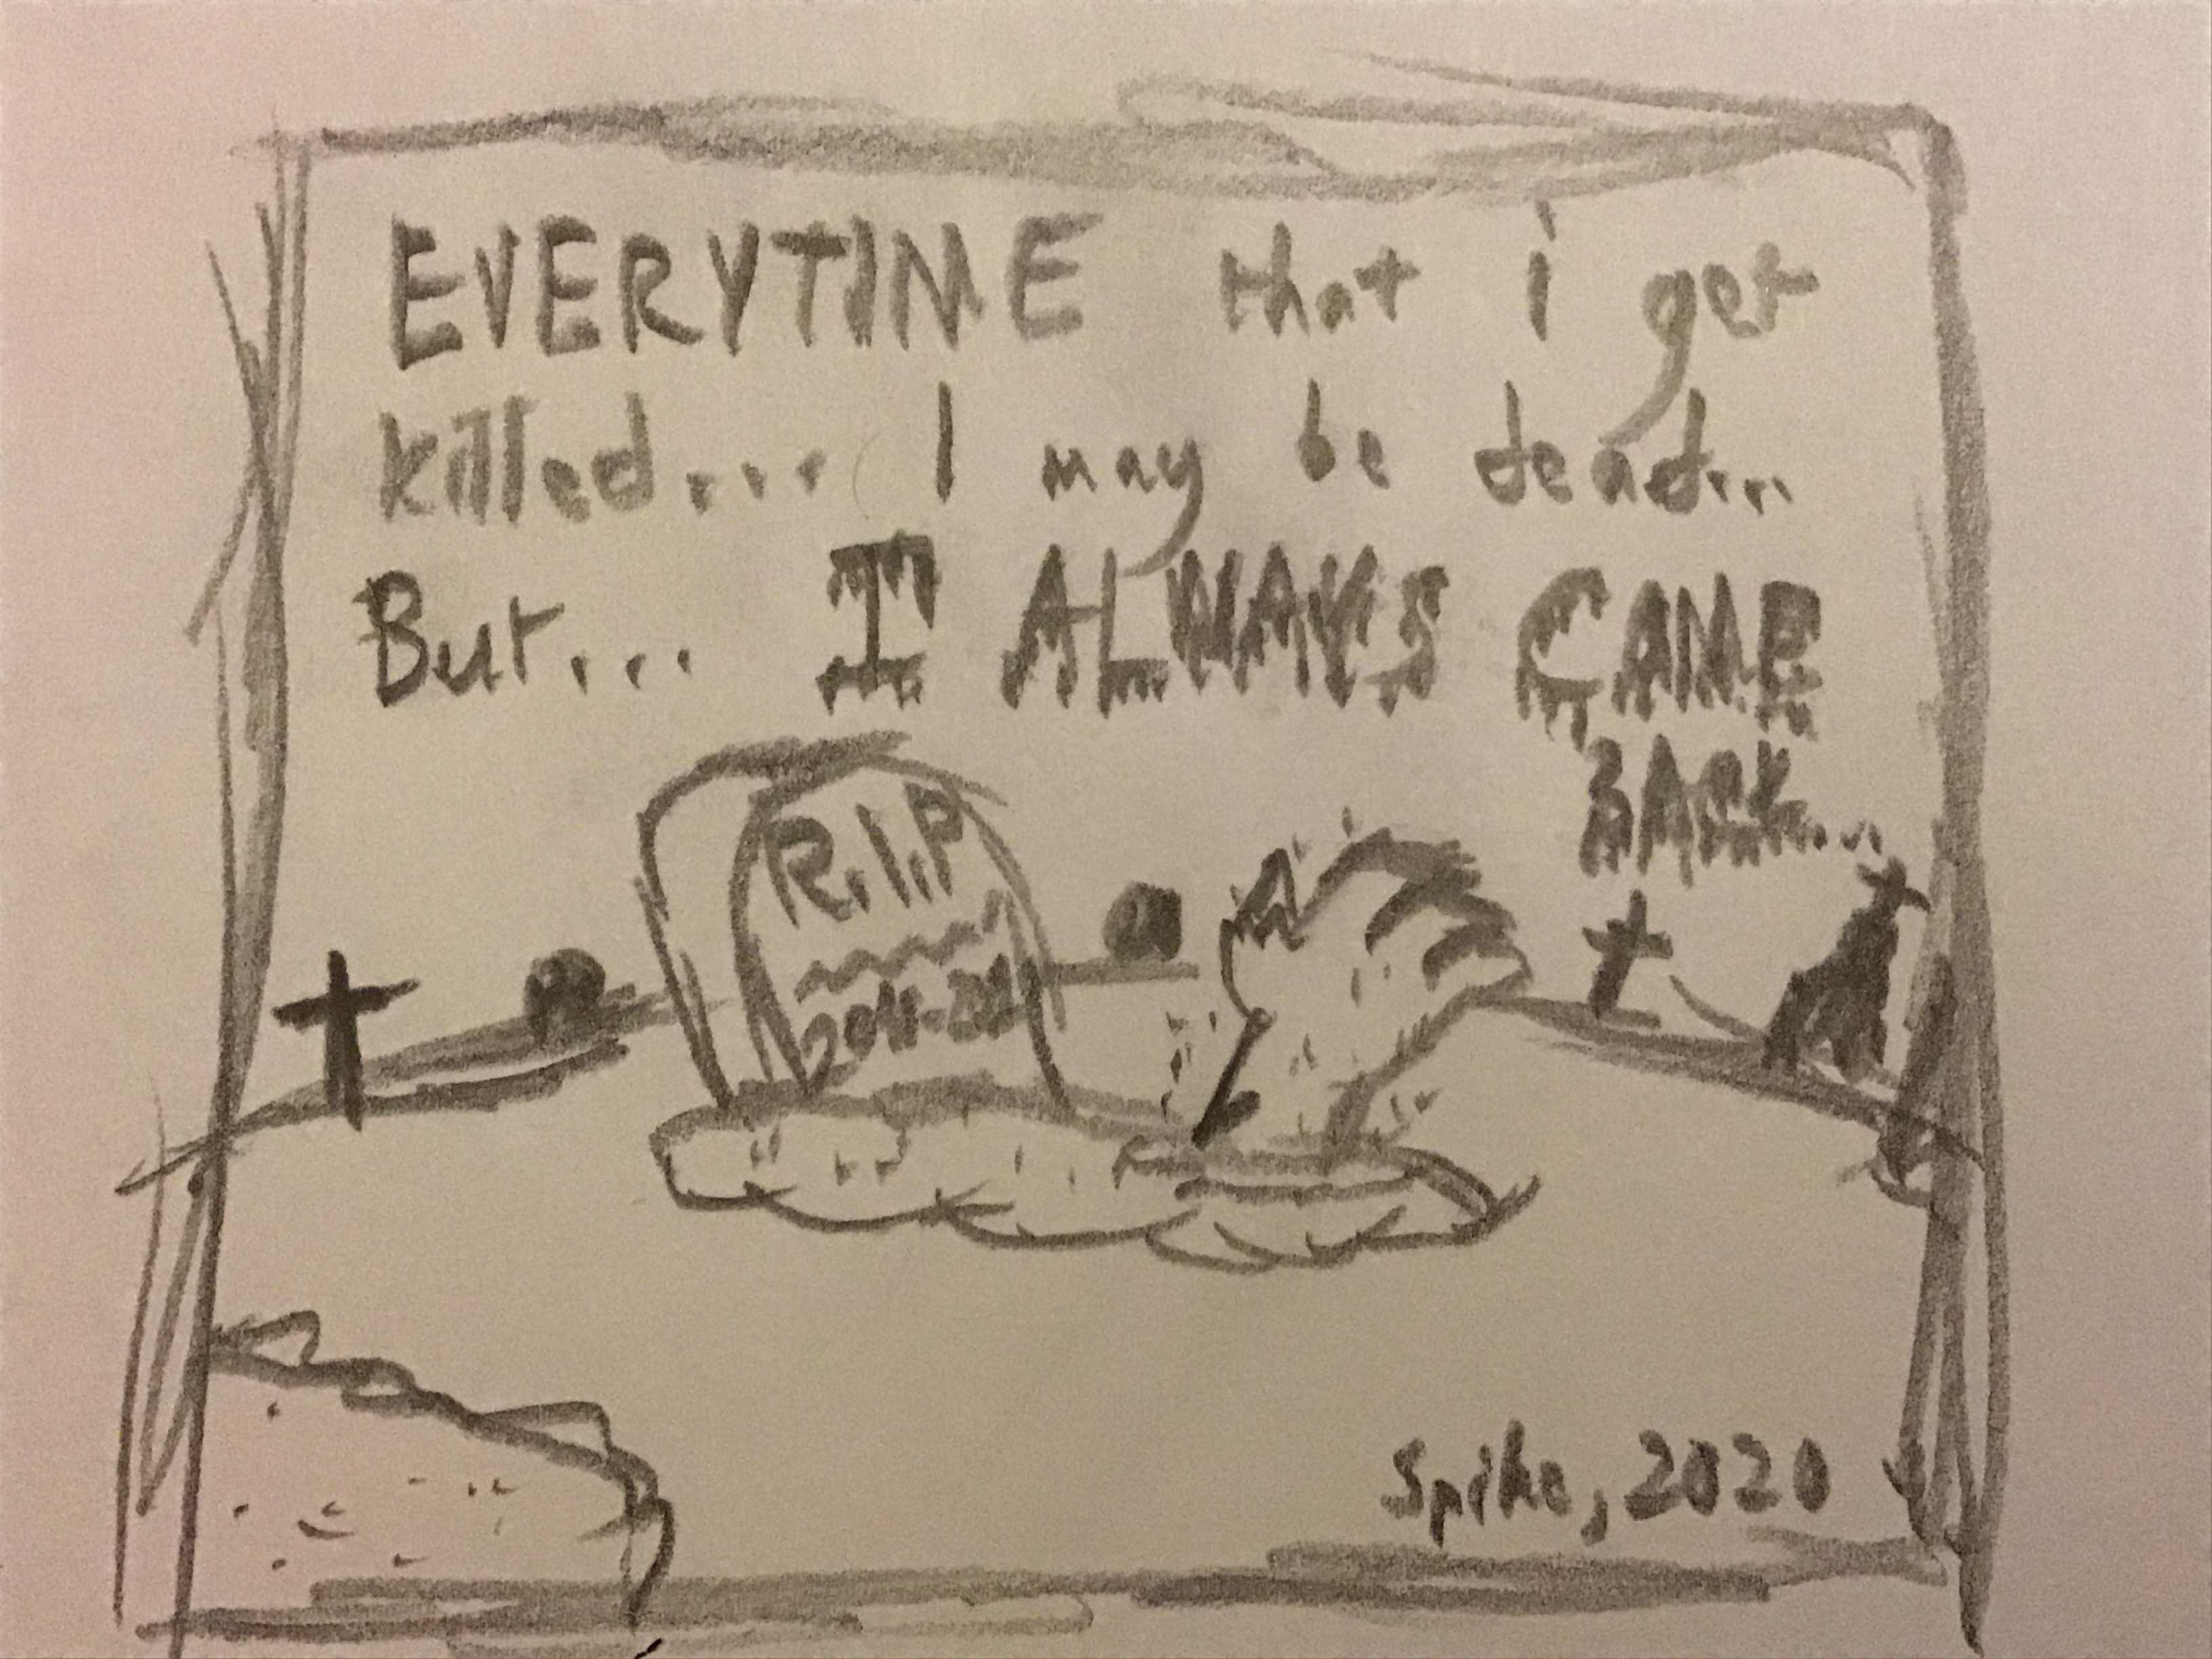 EVERYTIME that i get
killed... I may be dead...
But... I ALWAYS CAME
BACK...
R.I.P
Spike, 2020